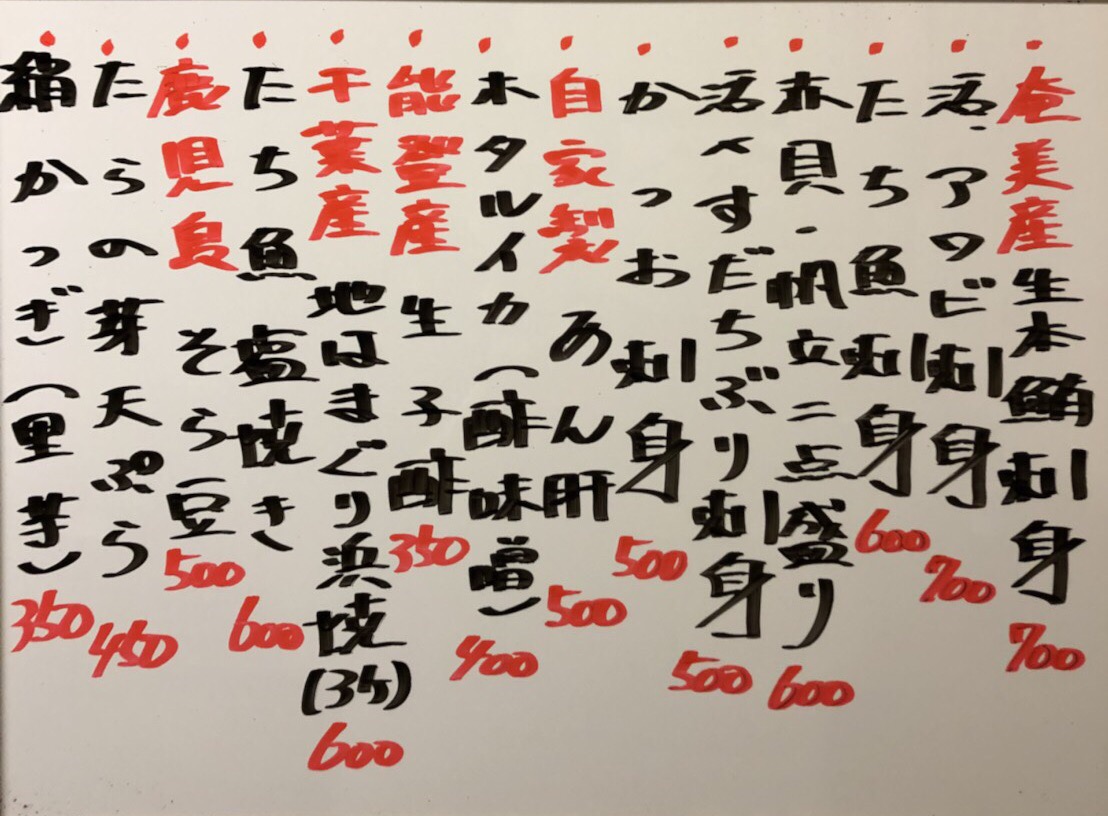 奄美産生本鮪刺身 700
活・アワビ刺身 700
たち魚刺身 600
赤貝・帆立二点盛り 600
活〆すだちぶり刺身 500
かつお刺身 500
自家製あん肝 500
ホタルイカ(酢味噌) 400
能登産生子酢 350
千葉産地はまぐり浜焼(3ケ) 600
たち魚塩焼き 600
鹿児島そら豆 500
たらの芽天ぷら 450
絹かつぎ(里芋) 350